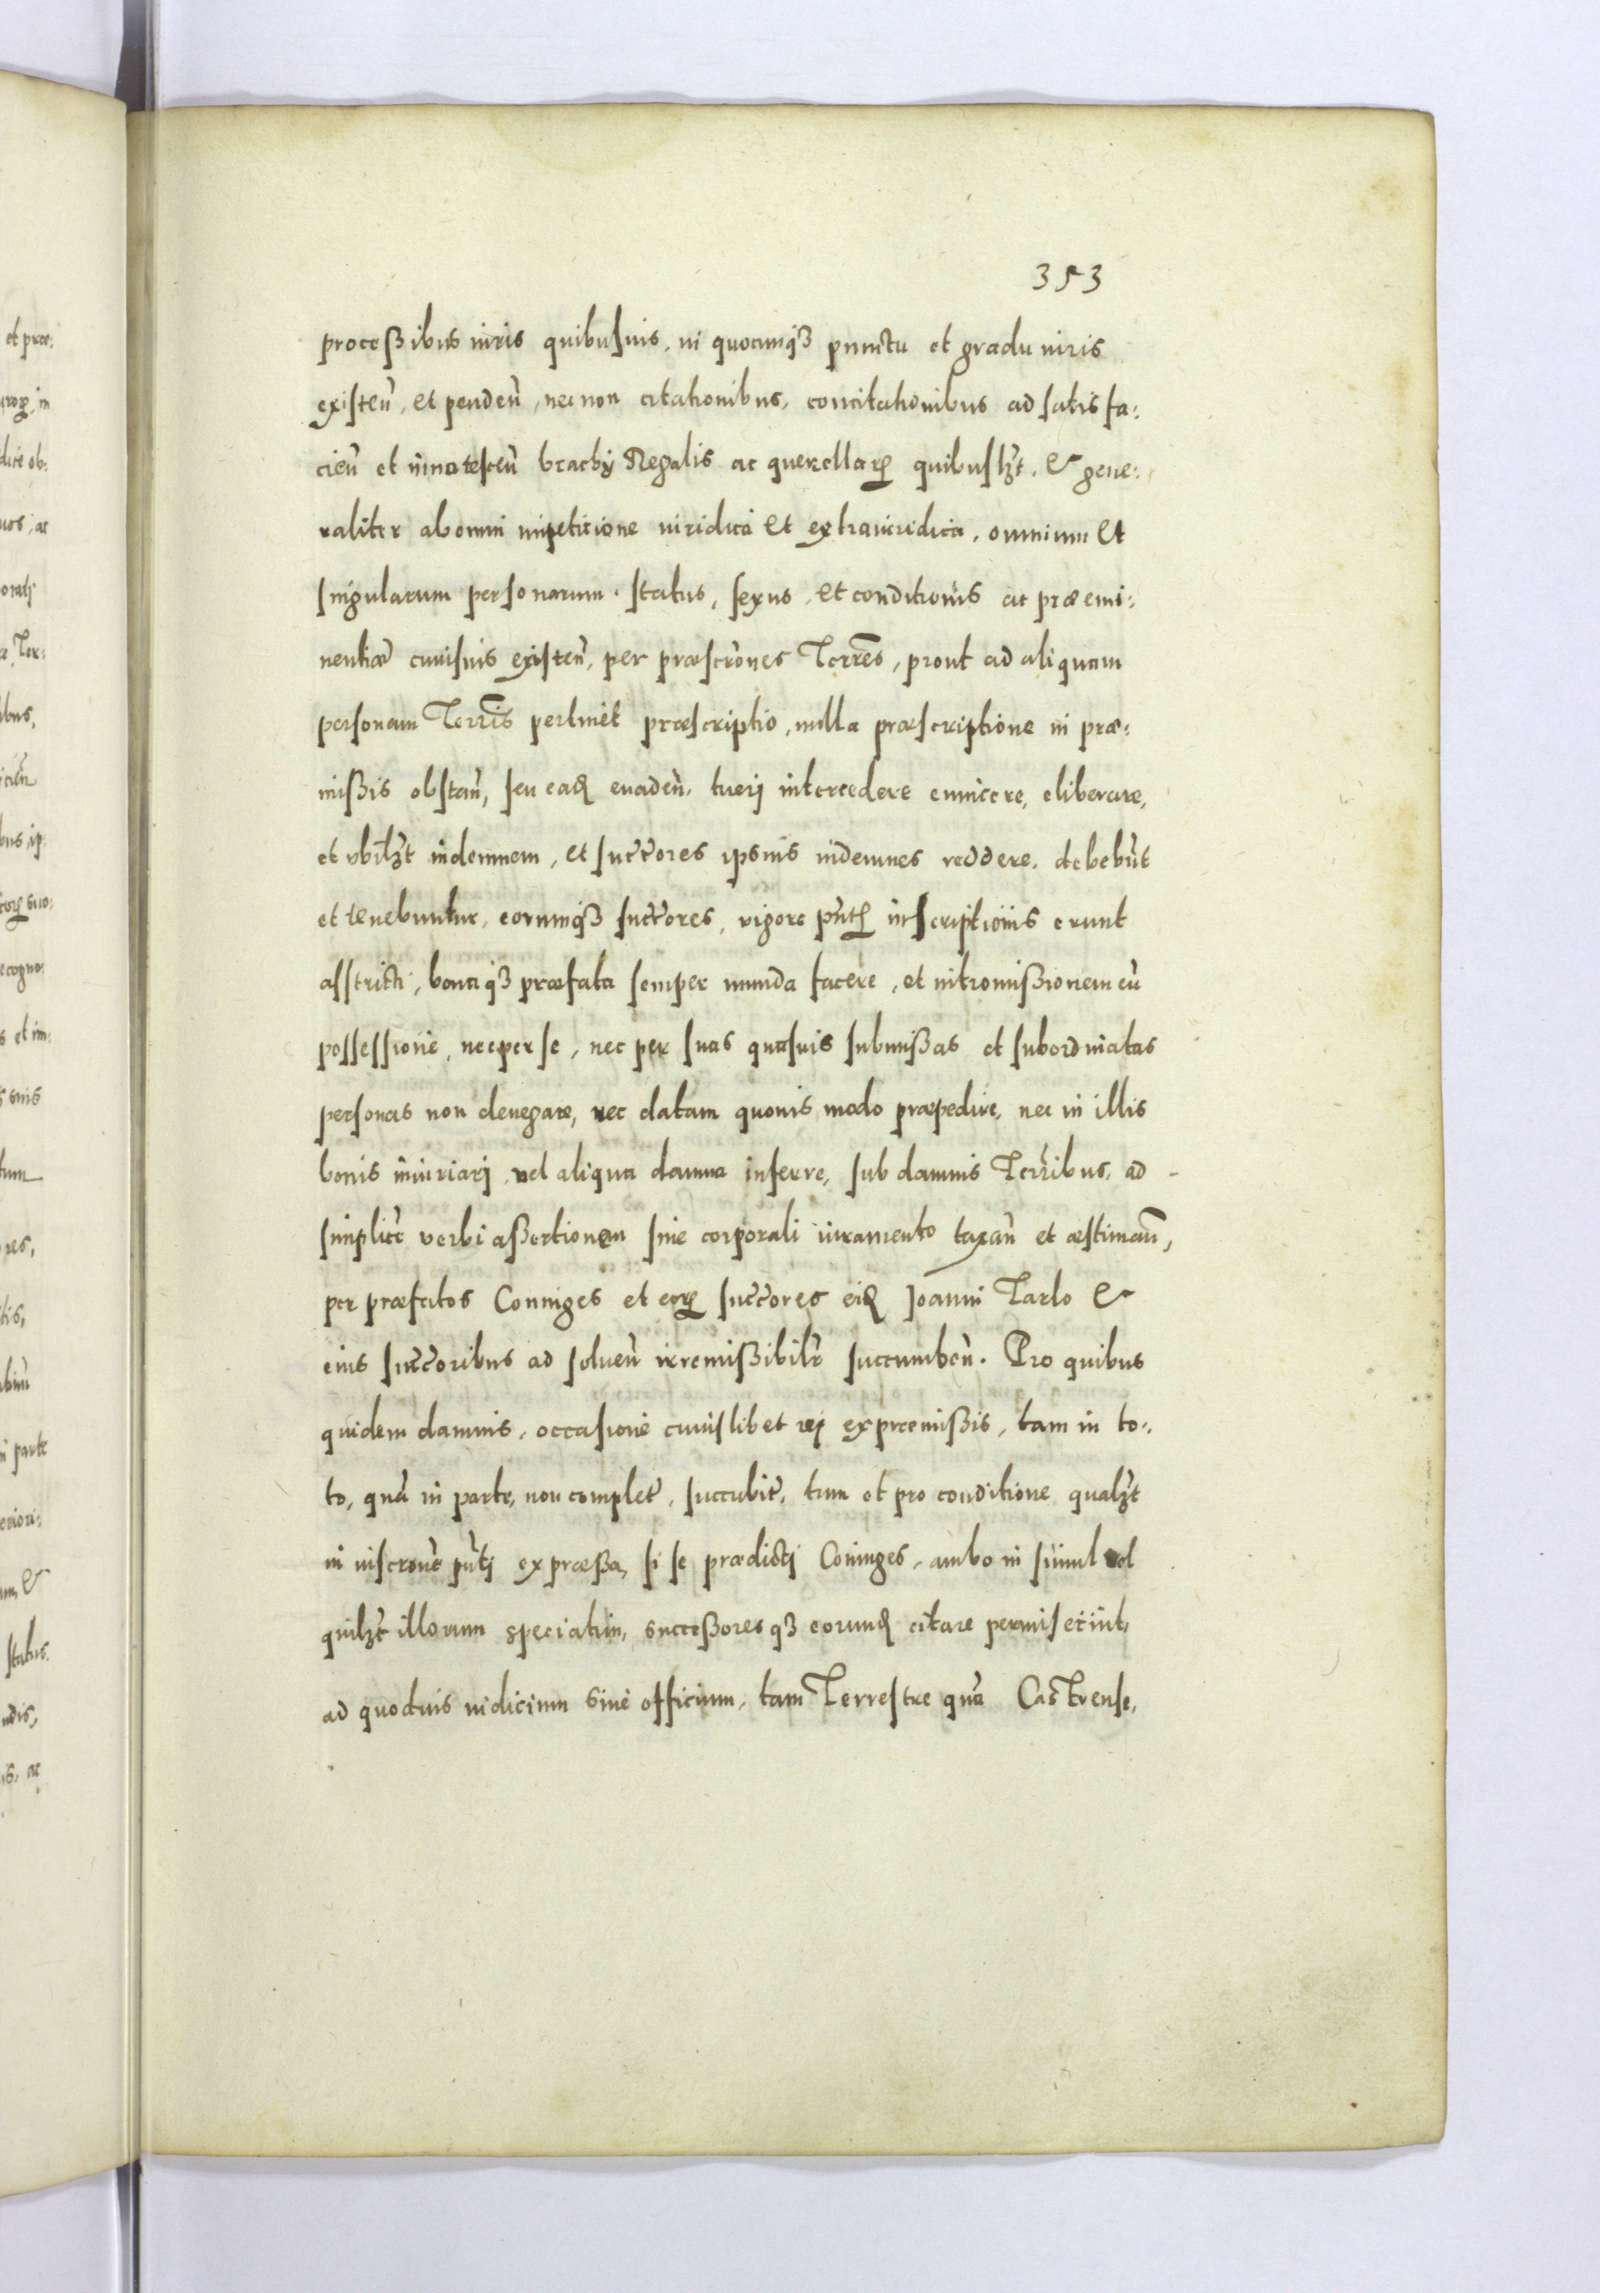 353
processibus iuris quibusuis, in quocunq₃ punctu et gradu iuris
existeñ, et pendeñ, nec non citationibus, concitationibus ad satisfa:
cieñ et innotesceñ brachij Regalis ac querellarꝝ quibuslꝫt, & gene:
raliter ab omni impetitione iuridica et extraiuridica, omnium et
singularum personarum status, sexus, et conditionis ac præemi:
nentiæ cuiusuis existeñ, per præscr̃ones Terrẽs, prout ad aliquam
personam Terrĩs pertinet præscriptio, nulla præscriptione in præ:
missis obstañ, seu eaꝗ euadeñ, tueri intercedere euincere, eliberare,
et vbilꝫt indemnem, et succ̃ores ipsius indemnes reddere, debebũt
et tenebuntur, eorumq₃ succ̃ores, vigore pñtꝭ inscriptionis erunt
asstricti, bonaq₃ præfata semper munda facere, et intromissionem eũ
possessione, nec per se, nec per suas quasuis submissas et subordinatas
personas non denegare, nec datam quouis modo præpedire, nec in illis
bonis iniuriari, vel aliqua damna inferre, sub damnis Terr̃ibus, ad
simplicẽ verbi assertionem sine corporali iuramento taxañ et æstimañ,
per præfatos Coniuges et eorꝝ succ̃ores eiꝗ Joanni Tarlo &
eius succ̃oribus ad solueñ irremissibilr̃ succumbeñ. Pro quibus
quidem damnis, occasione cuiuslibet rej ex præmissis, tam in to:
to, quã in parte, non complet̃, succubit̃, tum et pro conditione qualꝫt
in inscr̃one pñtj expræssa, si se prædictj Coniuges, ambo in simul vel
quilꝫt illorum speciatim, successoresq₃ eorunꝗ citare permiserint,
ad quoduis iudicium siue officium, tam Terrestre quã Castrense,